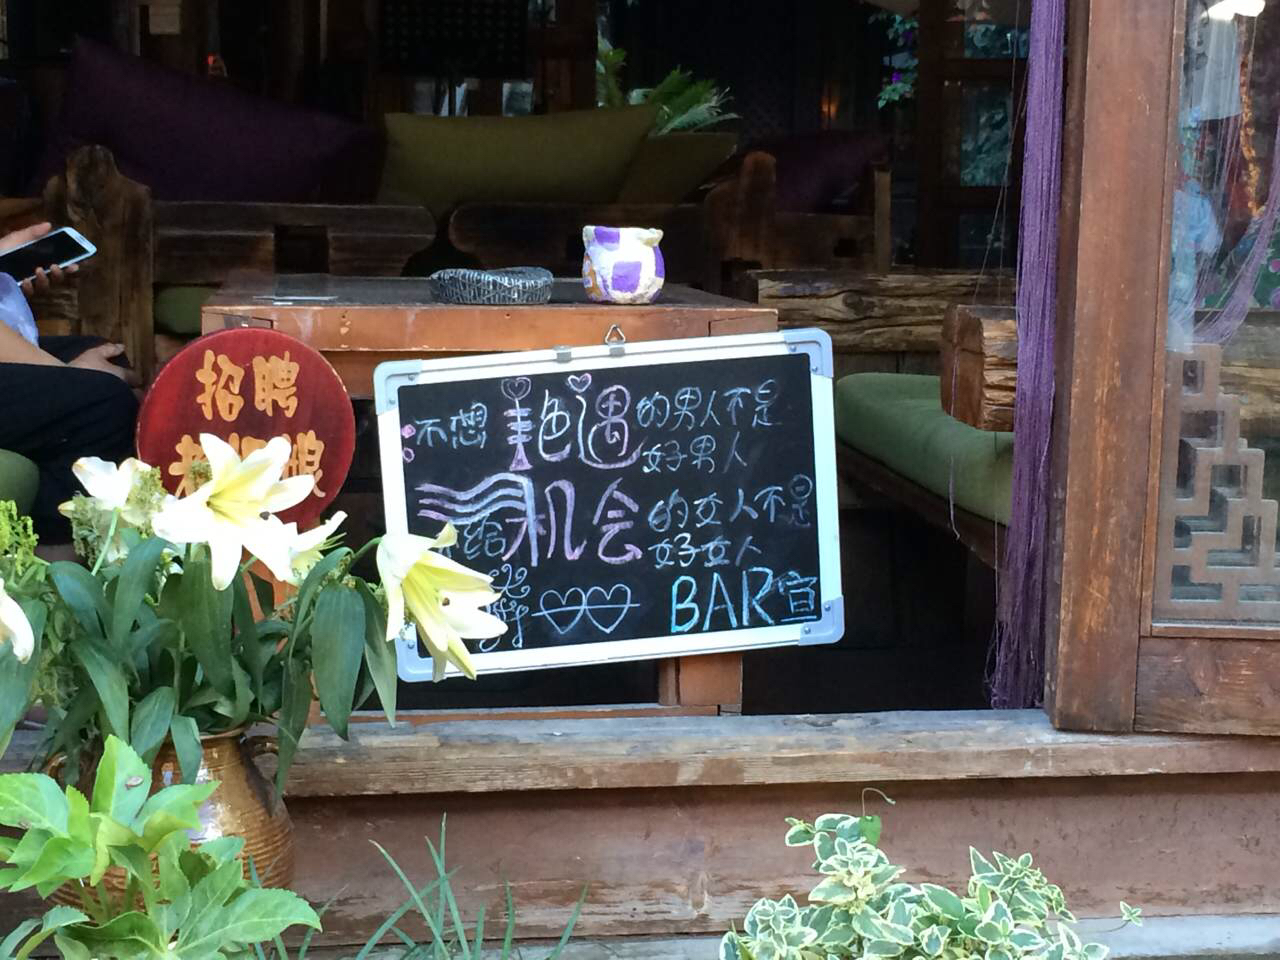 招聘
不想艳遇的男人不是
好男人
给机会的女人不是
好女人
BAR宣